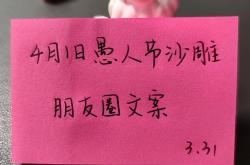 4月1日愚人节沙雕
朋友圈文案
3.31